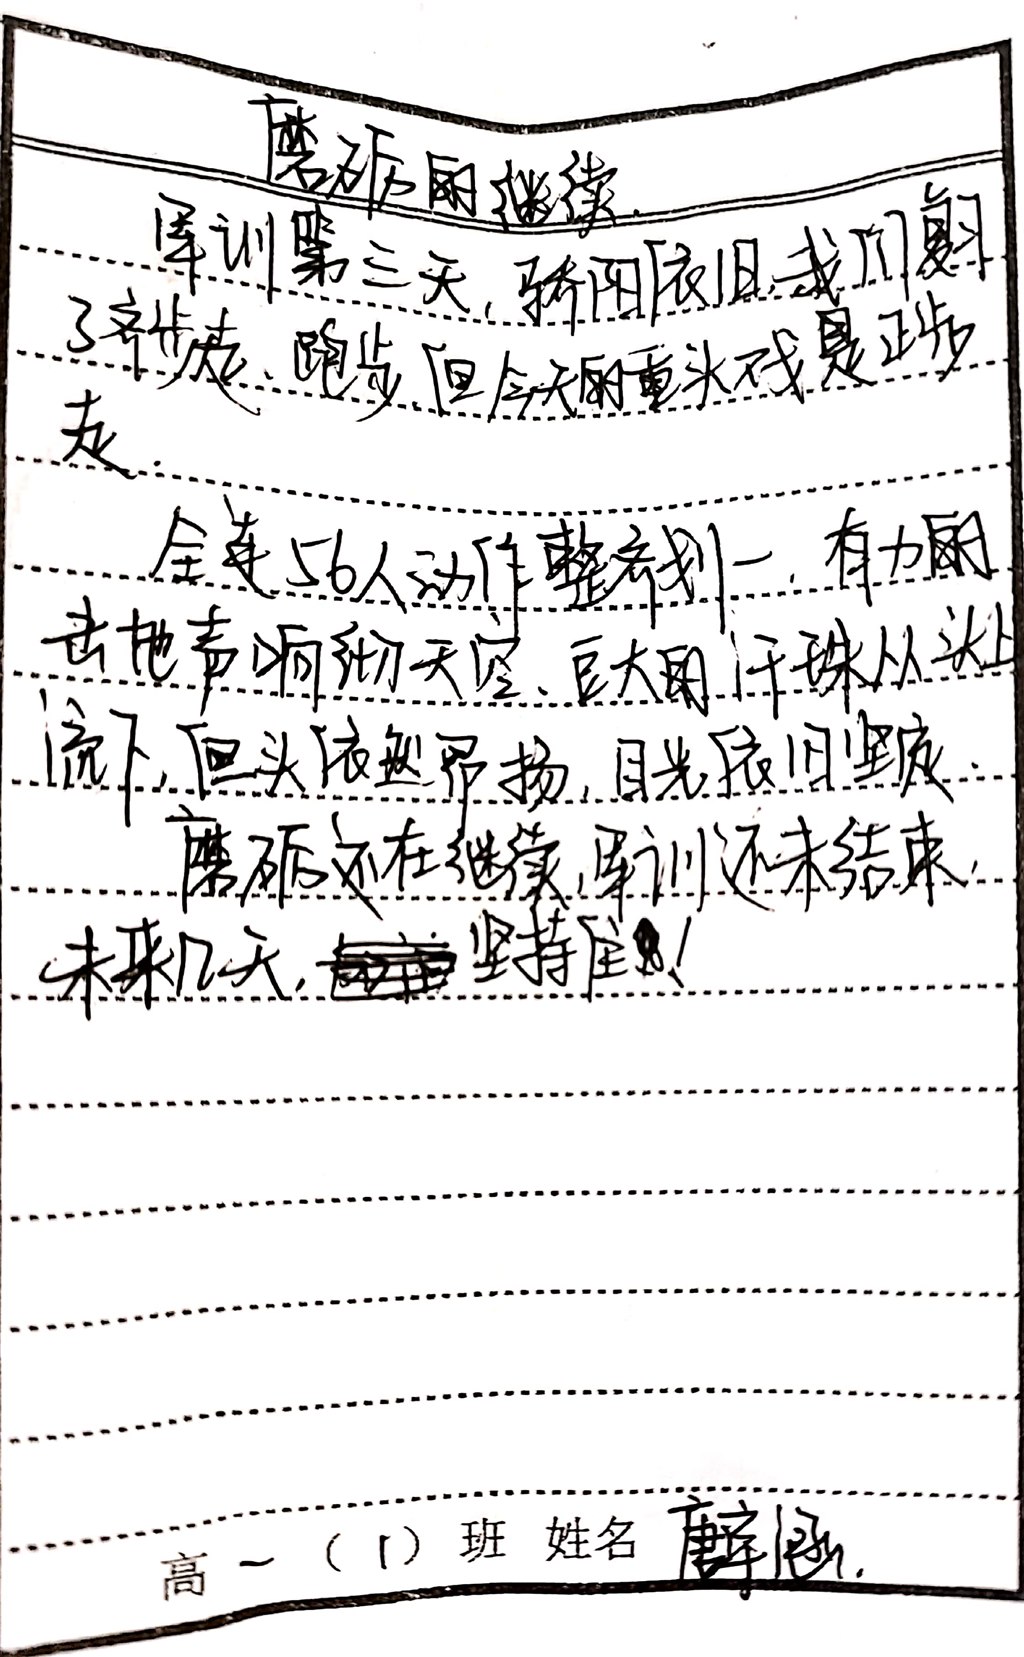 磨砺的继续
军训第三天,骄阳依旧,我们复习
了齐步走、跑步,但今天的重头戏是正步
走.
全连56人动作整齐划一,有力的
击地声响彻天空、豆大的汗珠从头上
流下,但头依然昂扬,目光依旧坚定.
磨砺还在继续,军训还未结束,
未来几天,坚持住!
高一(1)班 姓名 唐 涵.